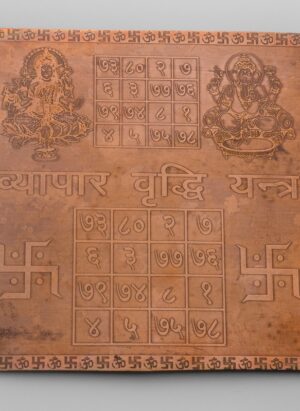 ७३ ८० २ ७
६ ३ ७७ ७६
७९ ७४ ८ १
४ ५ ७५ ७८
व्यापार वृद्धि यन्त्र
७३ ८० २ ७
६ ३ ७७ ७६
७९ ७४ ८ १
४ ५ ७५ ७८